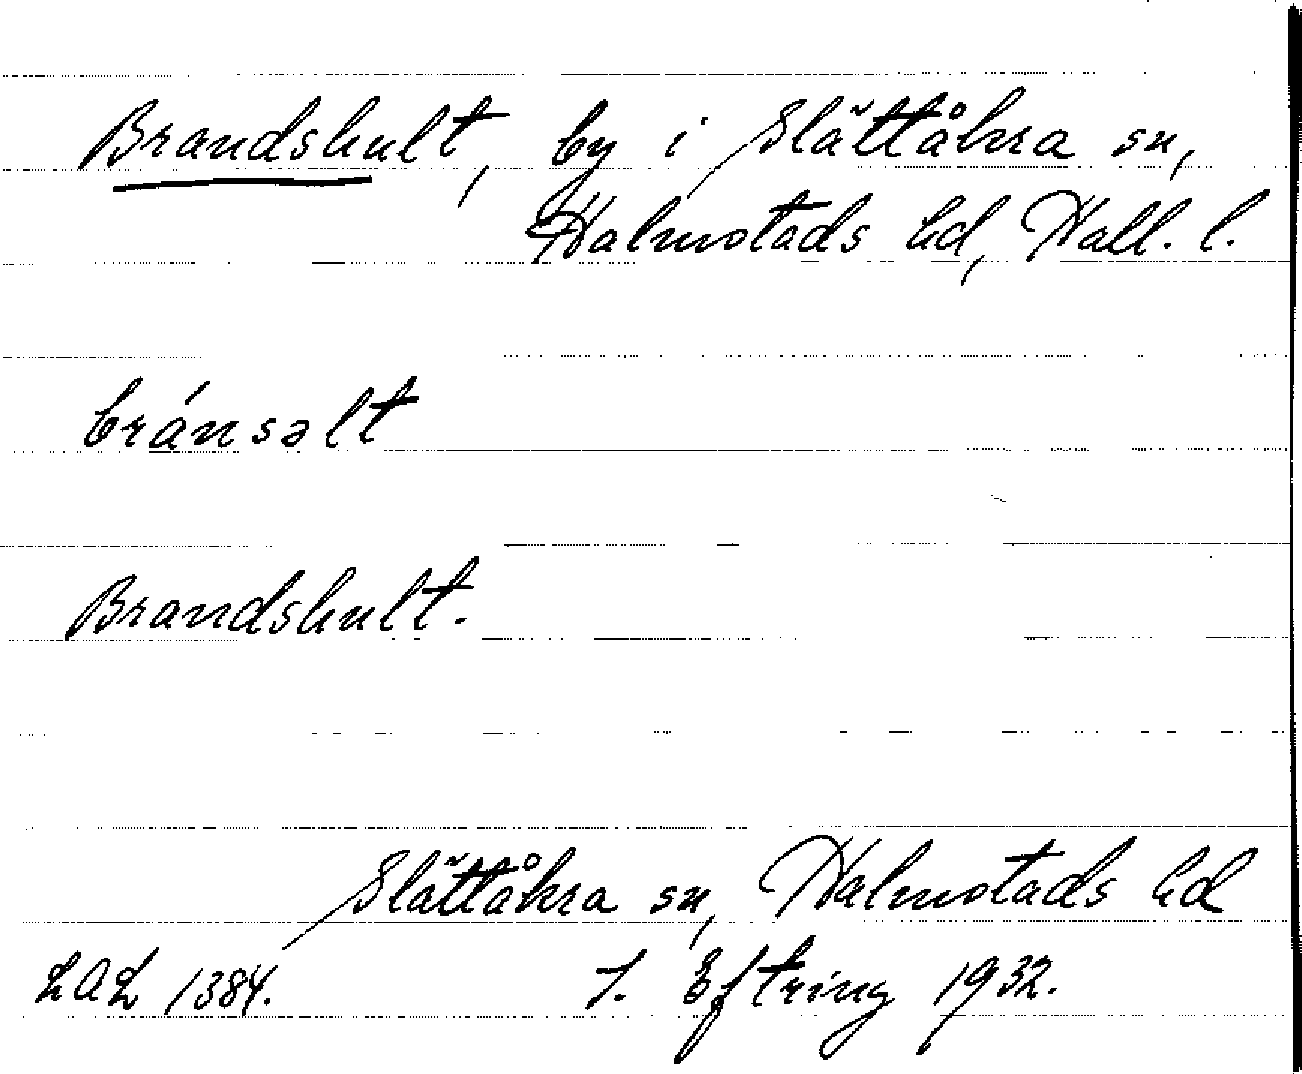 Brandshult, by i Slättåkra sn,
Halmstads hd, Hall. l.
bránsəlt
Brandshult.
Slättåkra sn, Halmstads hd
LAL 1384. J. Eftring 1932.